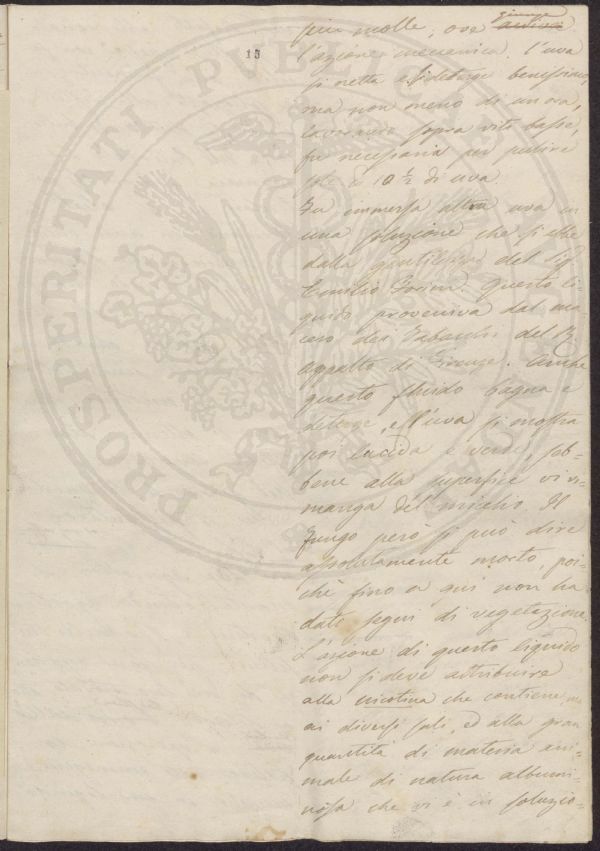 giunge
più molle, ove arriva
15
l'azione meccanica. L'uva
si netta e si deterge benissimo,
ma non meno di un ora,
lavorando sopra viti basse,
fu necessaria per pulire
10 ½ di uva.
Fu immersa altra uva in
una soluzione che si ebbe
dalla gentilezza del Sig
Emilio. Questo li=
quido proveniva dal ma=
cero dei Tabacchi del R.
appalto di Firenze. Anche
questo fluido bagna e
deterge, e l'uva si mostra
poi lucida e verde, seb=
bene alla superficie vi ri=
manga del micelio. Il
fungo però si può dire
assolutamente morto, poi=
chè fino a qui non ha
dato segni di vegetazione.
L'azione di questo liquido
non si deve attribuire
alla nicotina che contiene, ma
ai diversi sali, ed alla gran
quantità di materia ani=
male di natura albumi=
nosa che vi è in soluzio=
PROSPERITATI PVBLICAE